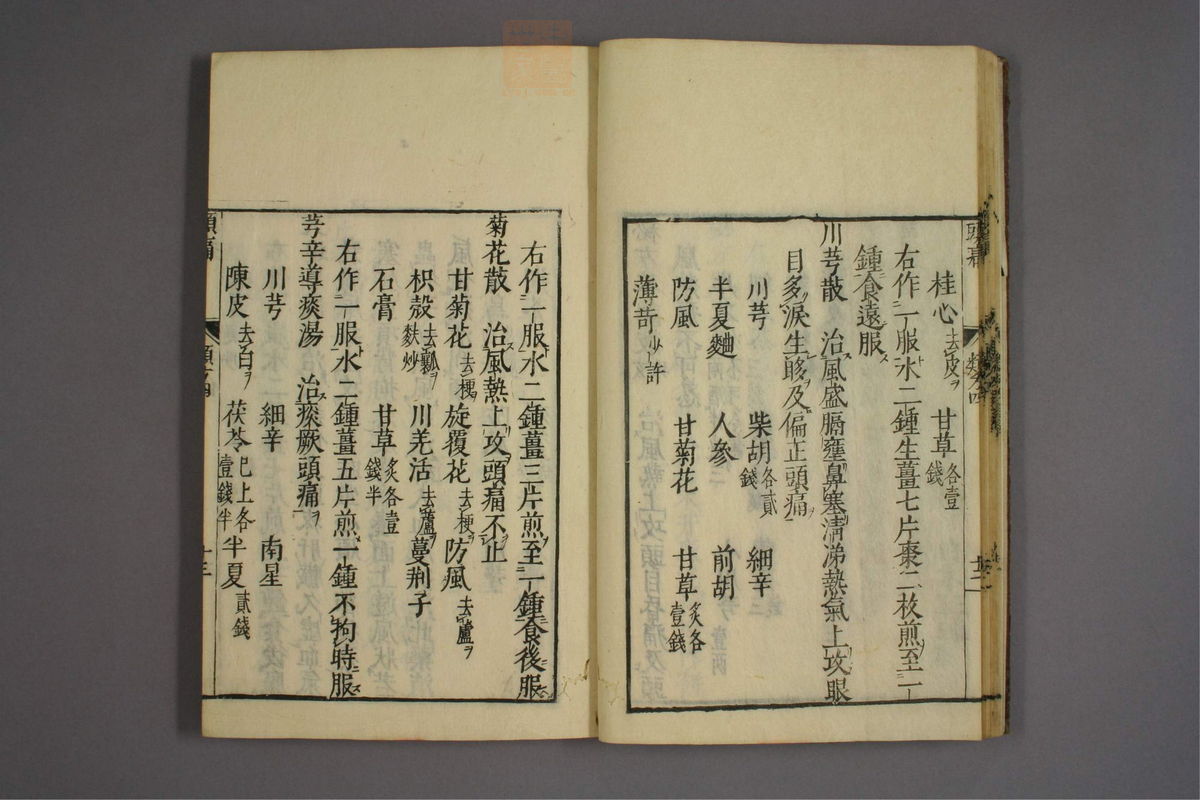 桂心去皮ヲ 甘草各壹錢
右作一服水二鍾生薑七片棗二枚煎至一
鍾食遠服ス
川芎散 治風盛膈壅鼻塞清涕熱氣上攻眼
目多淚生眵及偏正頭痛ヲ
川芎 柴胡各貳錢 細辛
半夏麯 人參 前胡
防風 甘菊花 甘草炙各壹錢
薄荷少許
右作一服水二鍾薑三片煎至一鍾食後服
菊花散 治風熱上攻頭痛不止
甘菊花去梗ヲ 旋覆花去梗ヲ 防風去蘆ヲ
枳殻去瓤ヲ麩炒 川羌活去蘆ヲ 蔓荆子
石膏 甘草炙各壹錢半
右作一服水二鍾薑五片煎一鍾不拘時服
芎辛導痰湯 治痰厥頭痛ヲ
川芎 細辛 南星
陳皮去白ヲ 茯苓已上各壹錢半 半夏貳錢
頭痛